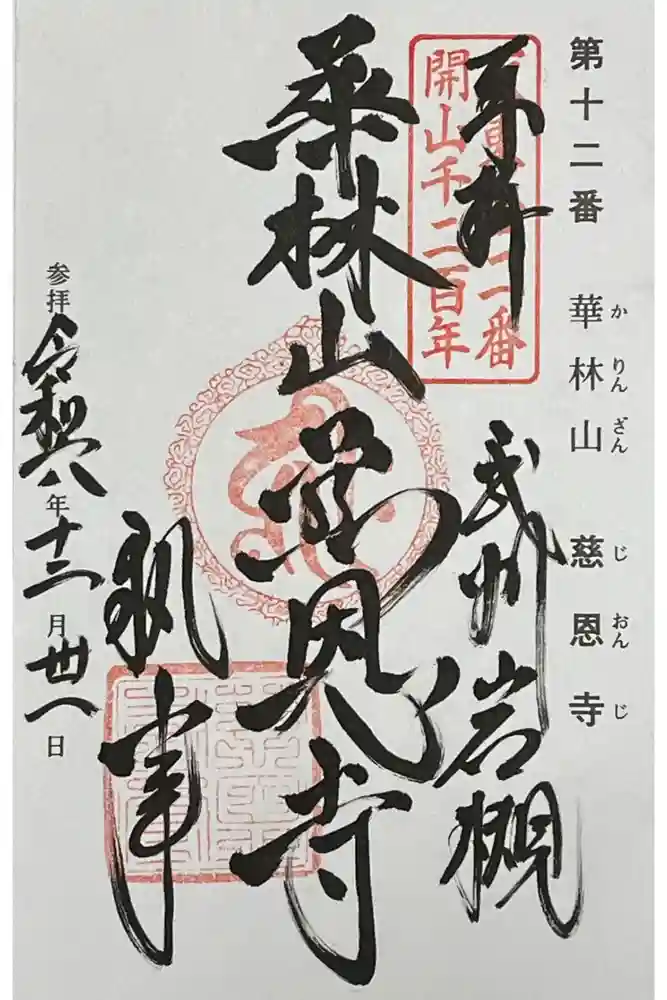 第十二番 華林山 慈恩寺
かりんざん じおんじ
奉拝
武州 岩槻
二番
開山千二百年
華林山慈恩寺
執事
参拝 令和六年十二月卅一日